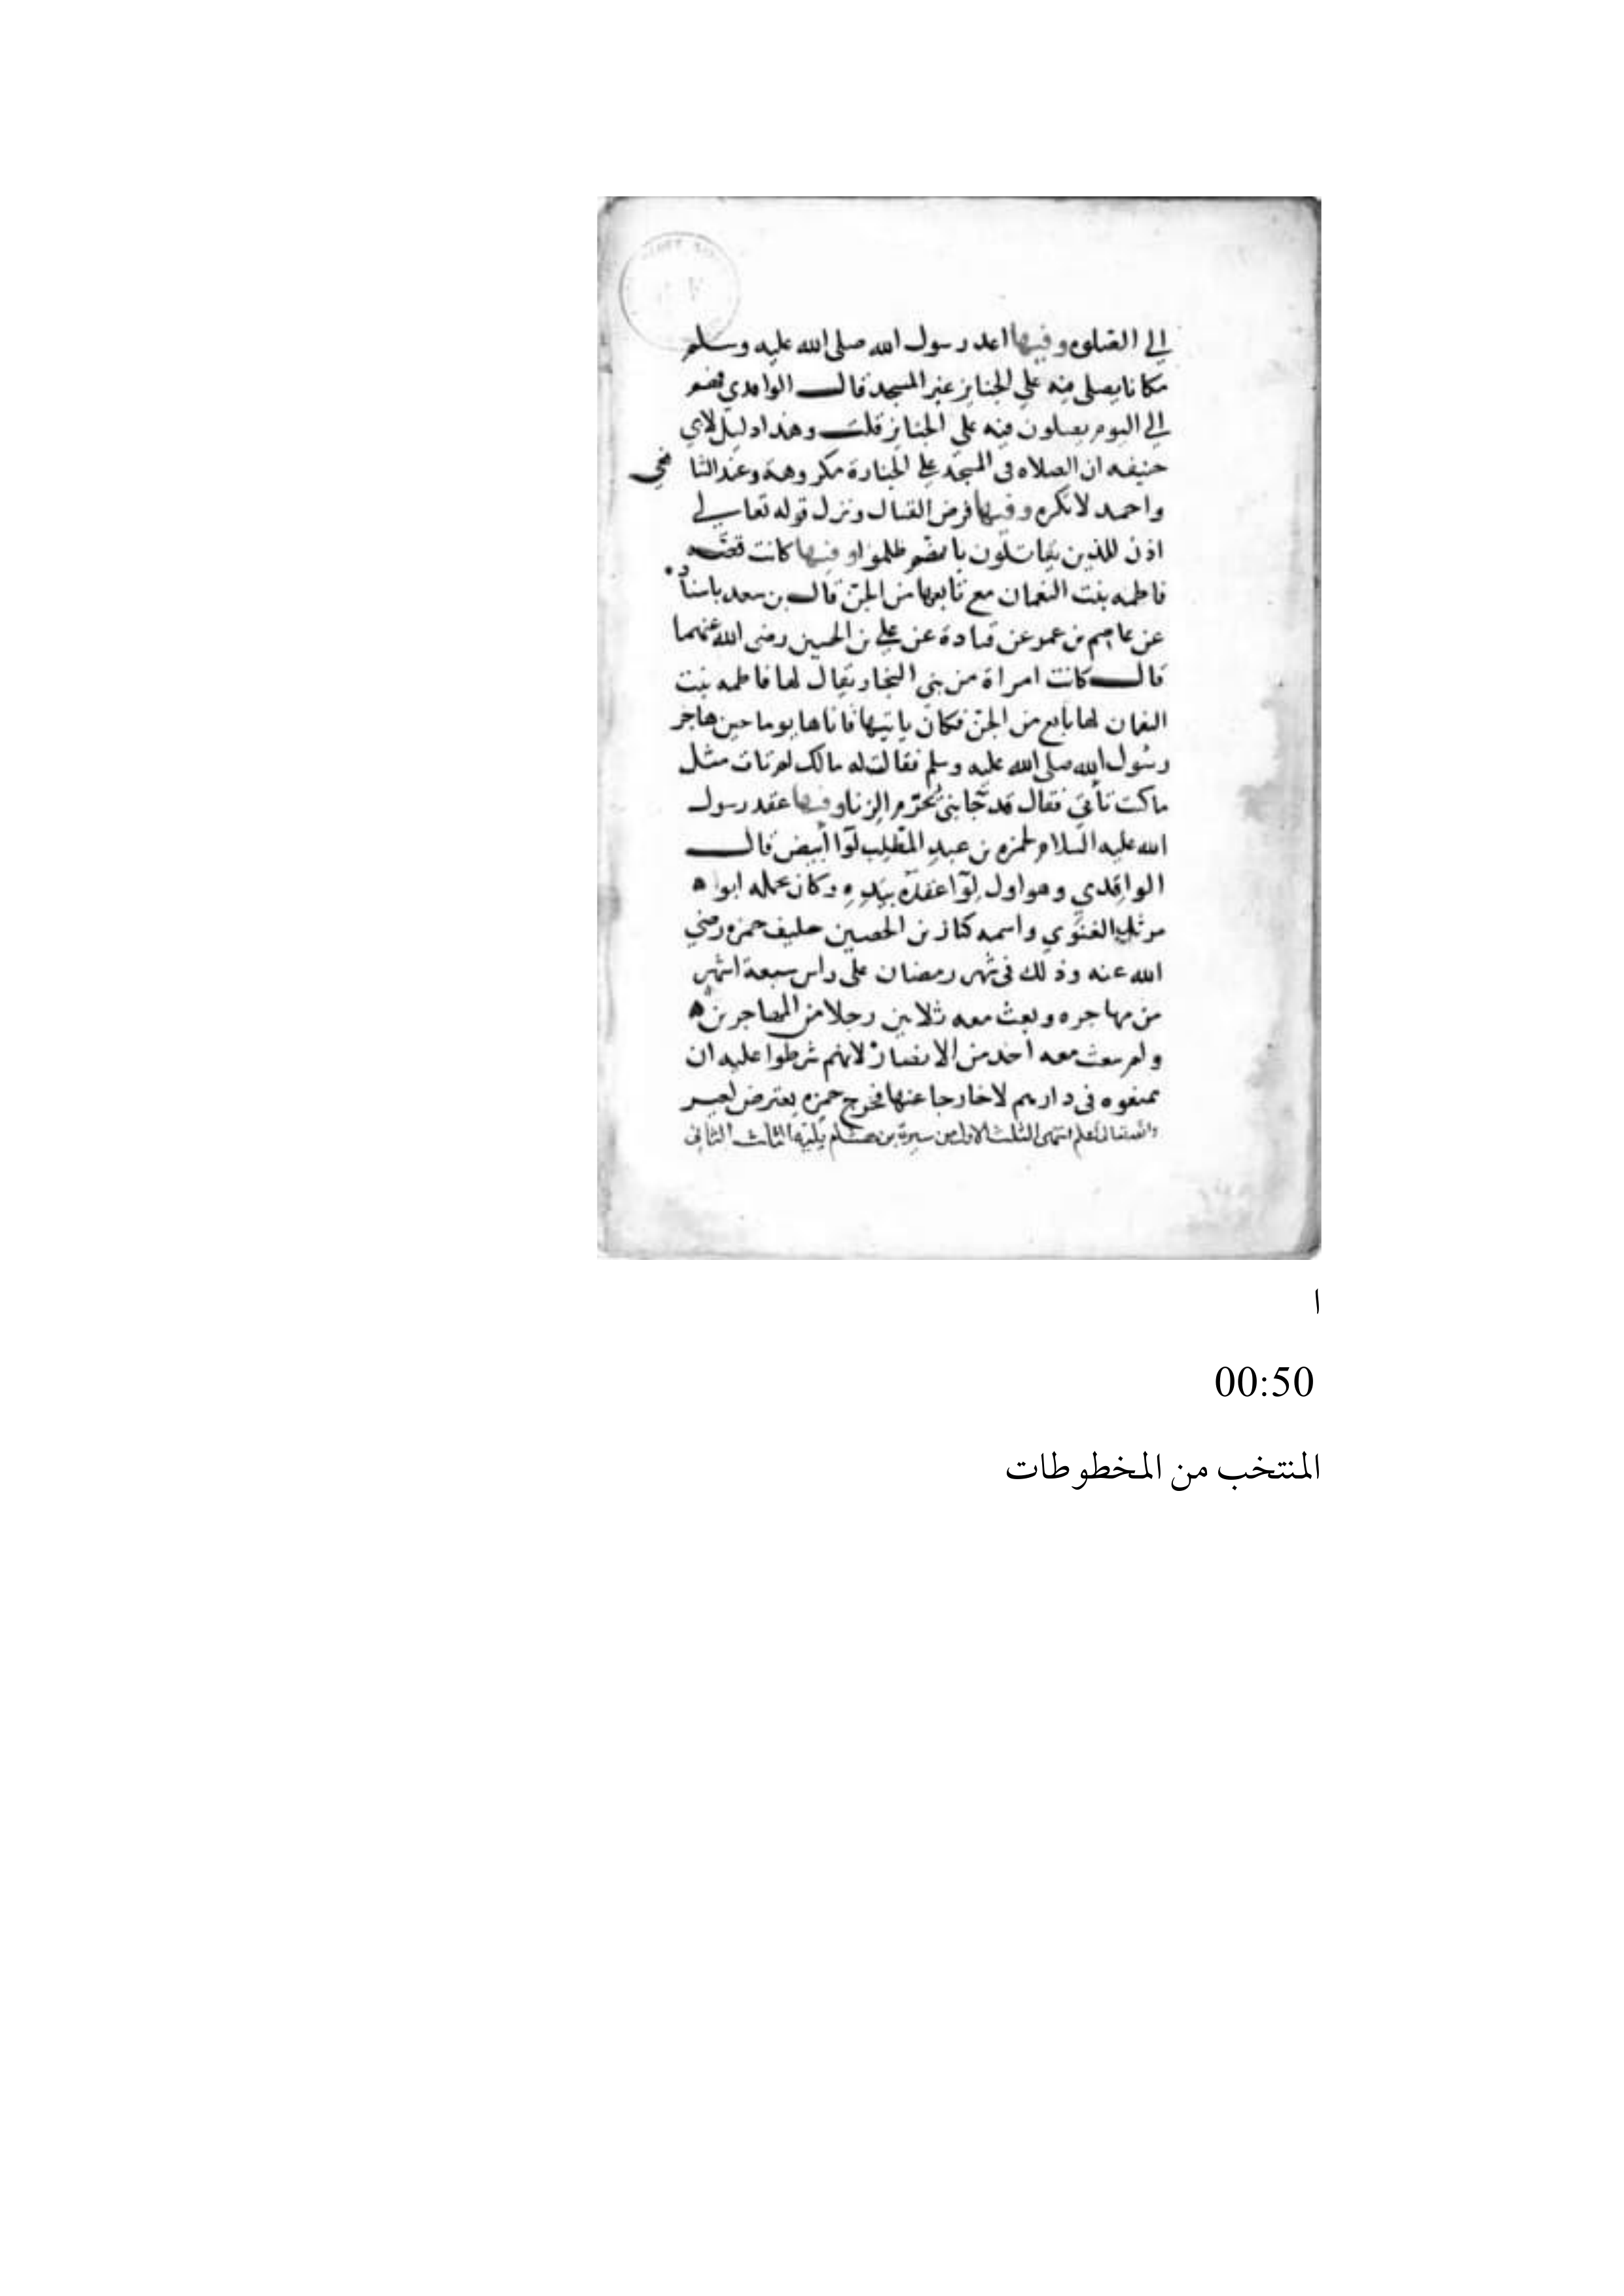 الى الصلوة وفيها اعد رسول الله صلى الله عليه وسلم
مكانا يصلى فيه على الجنايز غير المسجد قال الواقدي فهم
الى اليوم يصلون فيه على الجنايز قلت وهذا دليل لابي
حنيفه ان الصلاه فى المسجد على الجنازة مكروهة وعند الشا
فعي
واحمد لا تكره وفيها فرض القتال ونزل قوله تعالى
اذن للذين يقاتلون بانهم ظلموا وفيها كانت قصة
فاطمه بنت النعمان مع تابعها من الجن قال بن سعد باسناد
عن عاصم بن عمر عن قتادة عن علي بن الحسين رضى الله عنهما
قال كانت امراة من بني النجار يقال لها فاطمه بنت
النعمان لها تابع من الجن فكان ياتيها فاتاها يوما حين هاجر
رسول الله صلى الله عليه وسلم فقالت له مالك لم تات مثل
ما كنت تأتي فقال قد جانبي تحرم الزنا وفيها عقد رسول
الله عليه السلام لحمزه بن عبد المطلب لوا أبيض قال
الواقدي وهو اول لوا عقده بيده وكان حمله ابوا
مرثد الغنوي واسمه كناز بن الحصين حليف حمزه رضي
الله عنه وذلك فى شهر رمضان على راس سبعة اشهر
من مهاجره وبعث معه ثلاثين رجلا من المهاجرين
ولم يبعث معه أحد من الانصار لانهم شرطوا عليه ان
يمنعوه فى دارهم لا خارجا عنها فخرج حمزه يعترض لعير
والله تعالى اعلم انتهى الثلث الاول من سيرة بن هشام يليه الثلث الثاني
ا
00:50
المنتخب من المخطوطات